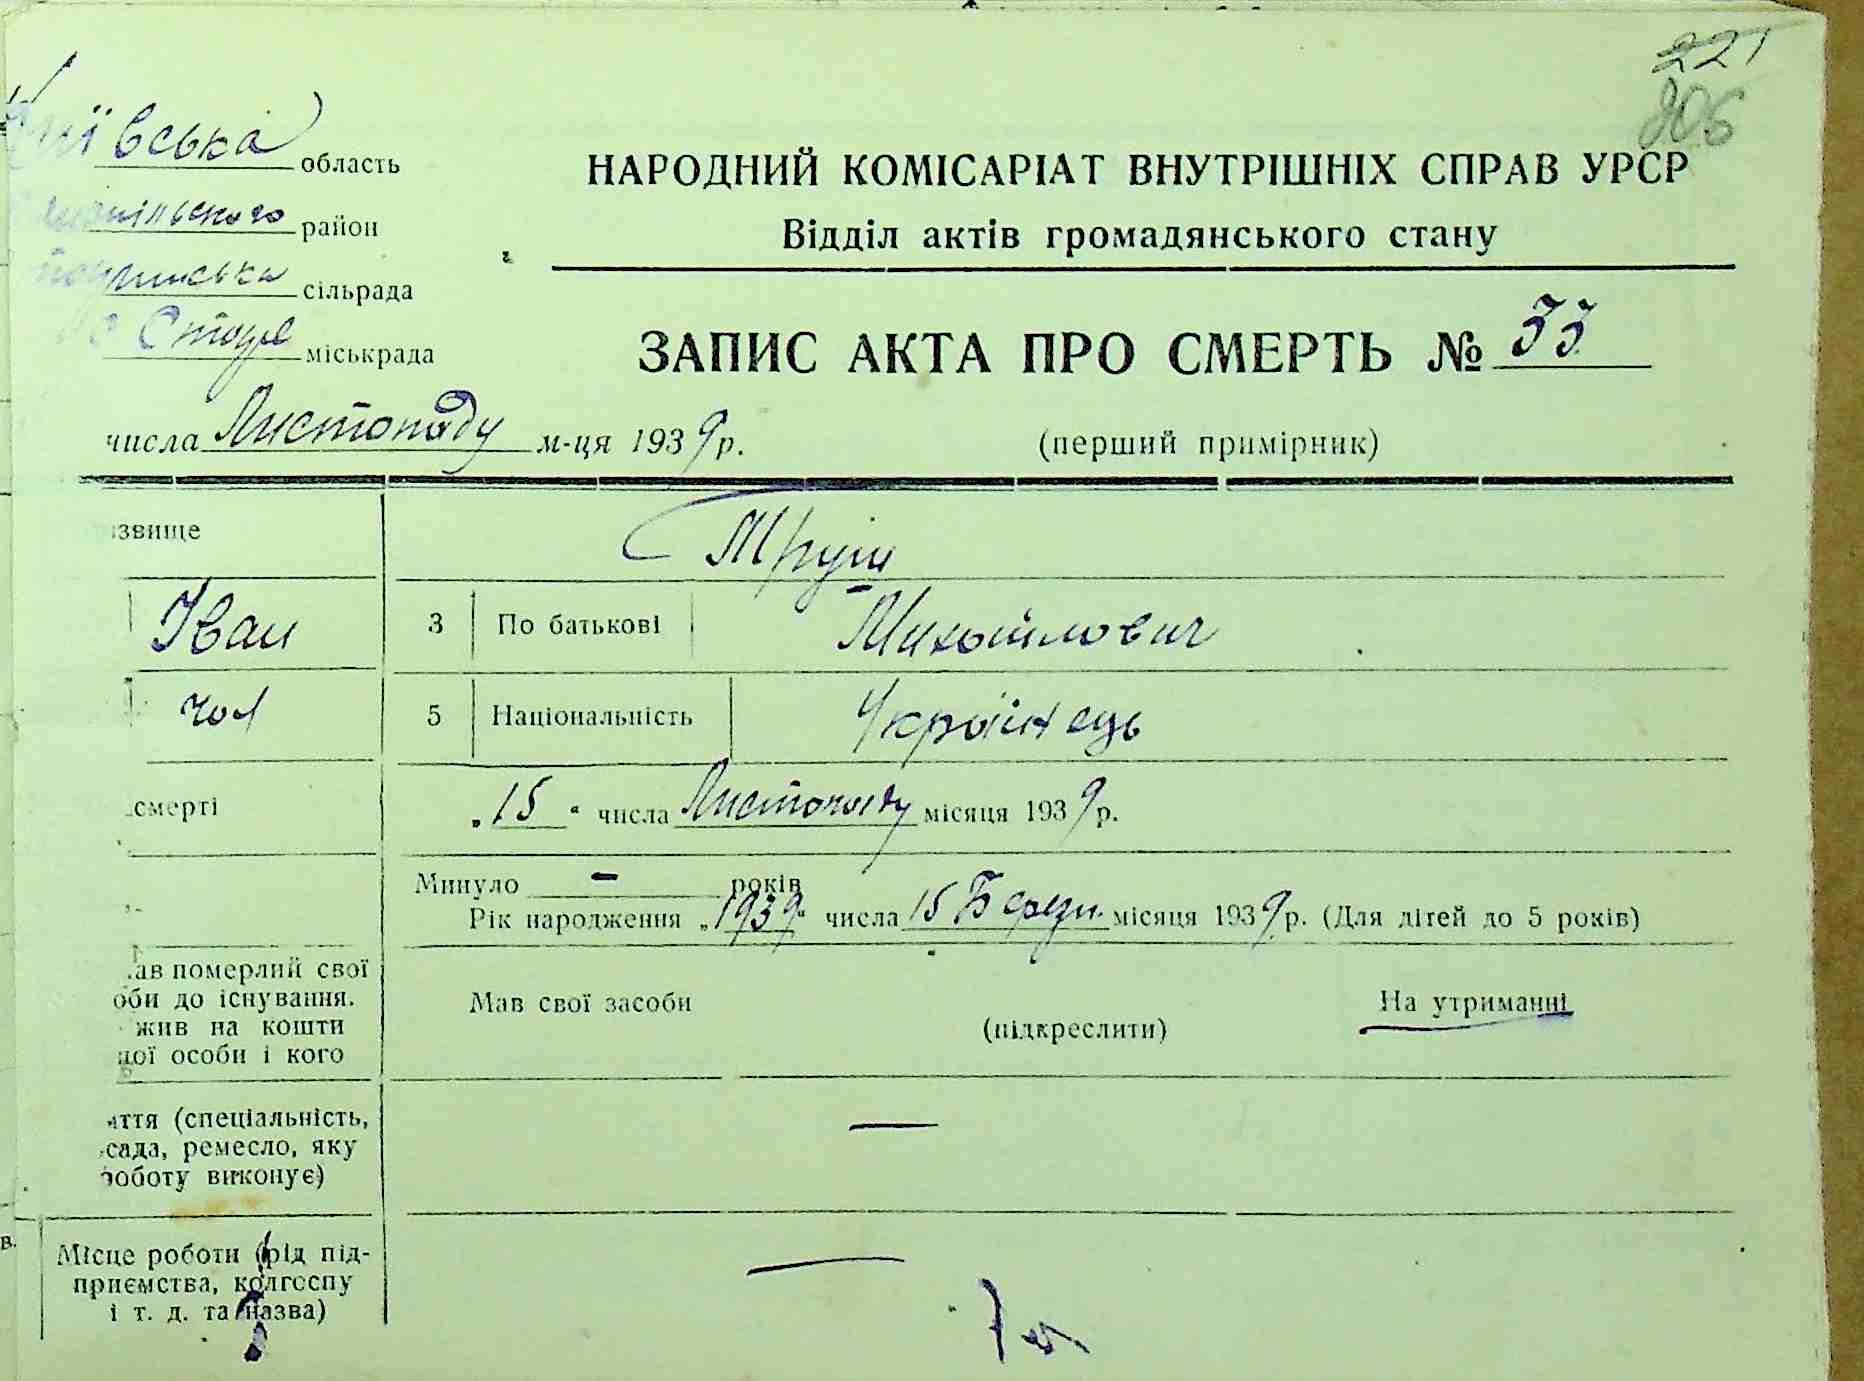 221
806
Київська область
НАРОДНИЙ КОМІСАРІАТ ВНУТРІШНІХ СПРАВ УРСР
район
Відділ актів громадянського стану
сільрада
Старе міськрада
ЗАПИС АКТА ПРО СМЕРТЬ № 33
числа Листопаду м-ця 1939 р.
(перший примірник)
ізвище
Іван
3 По батькові Михайлович
чол
5 Національність Українець
смерті
„15“ числа Листопаду місяця 1939 р.
Минуло - років
Рік народження „1939“ числа 15 Березн. місяця 1939 р. (Для дітей до 5 років)
ав померлий свої
оби до існування.
жив на кошти
ої особи і кого
Мав свої засоби
(підкреслити)
На утриманні
яття (спеціальність,
сада, ремесло, яку
роботу виконує)
—
в.
Місце роботи (рід під-
приємства, колгоспу
і т. д. та назва)
—